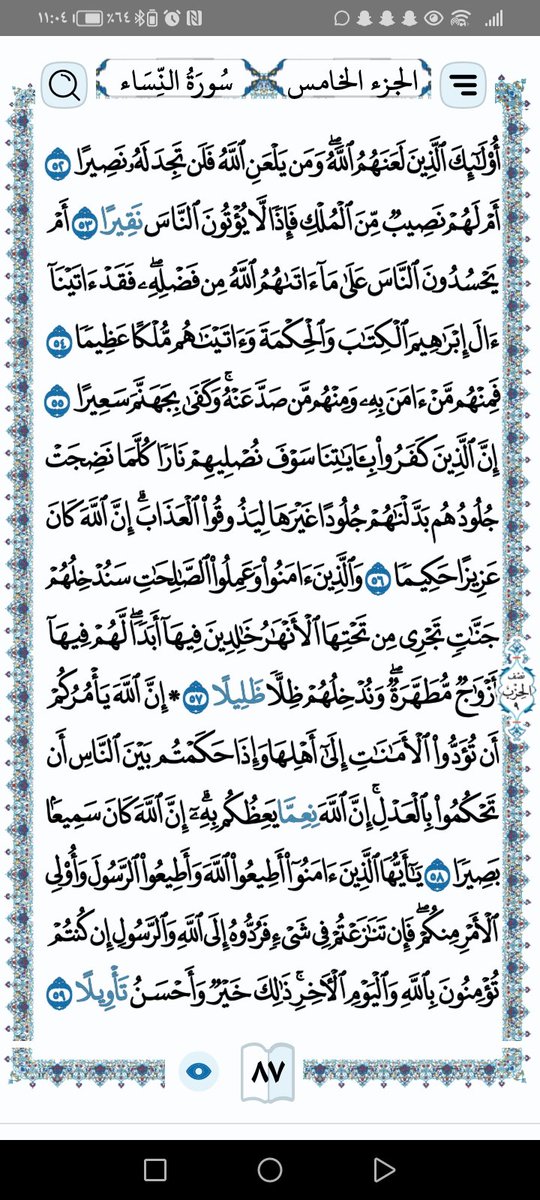 ١١:٠٤ ٪٦٤
الجزء الخامس سُورَةُ النِّسَاء
أُوْلَٰٓئِكَ ٱلَّذِينَ لَعَنَهُمُ ٱللَّهُۖ وَمَن يَلْعَنِ ٱللَّهُ فَلَن تَجِدَ لَهُۥ نَصِيرًا ٥٢
أَمْ لَهُمْ نَصِيبٌ مِّنَ ٱلْمُلْكِ فَإِذًا لَّا يُؤْتُونَ ٱلنَّاسَ نَقِيرًا ٥٣ أَمْ
يَحْسُدُونَ ٱلنَّاسَ عَلَىٰ مَآ ءَاتَىٰهُمُ ٱللَّهُ مِن فَضْلِهِۦۖ فَقَدْ ءَاتَيْنَآ
ءَالَ إِبْرَٰهِيمَ ٱلْكِتَٰبَ وَٱلْحِكْمَةَ وَءَاتَيْنَٰهُم مُّلْكًا عَظِيمًا ٥٤
فَمِنْهُم مَّنْ ءَامَنَ بِهِۦ وَمِنْهُم مَّن صَدَّ عَنْهُۚ وَكَفَىٰ بِجَهَنَّمَ سَعِيرًا ٥٥
إِنَّ ٱلَّذِينَ كَفَرُواْ بِـَٔايَٰتِنَا سَوْفَ نُصْلِيهِمْ نَارًا كُلَّمَا نَضِجَتْ
جُلُودُهُم بَدَّلْنَٰهُمْ جُلُودًا غَيْرَهَا لِيَذُوقُواْ ٱلْعَذَابَۗ إِنَّ ٱللَّهَ كَانَ
عَزِيزًا حَكِيمًا ٥٦ وَٱلَّذِينَ ءَامَنُواْ وَعَمِلُواْ ٱلصَّٰلِحَٰتِ سَنُدْخِلُهُمْ
جَنَّٰتٍ تَجْرِى مِن تَحْتِهَا ٱلْأَنْهَٰرُ خَٰلِدِينَ فِيهَآ أَبَدًاۖ لَّهُمْ فِيهَآ
أَزْوَٰجٌ مُّطَهَّرَةٌۖ وَنُدْخِلُهُمْ ظِلًّا ظَلِيلًا ٥٧ * إِنَّ ٱللَّهَ يَأْمُرُكُمْ
نصف
الحزب
٩
أَن تُؤَدُّواْ ٱلْأَمَٰنَٰتِ إِلَىٰٓ أَهْلِهَا وَإِذَا حَكَمْتُم بَيْنَ ٱلنَّاسِ أَن
تَحْكُمُواْ بِٱلْعَدْلِۚ إِنَّ ٱللَّهَ نِعِمَّا يَعِظُكُم بِهِۦٓۗ إِنَّ ٱللَّهَ كَانَ سَمِيعًۢا
بَصِيرًا ٥٨ يَٰٓأَيُّهَا ٱلَّذِينَ ءَامَنُوٓاْ أَطِيعُواْ ٱللَّهَ وَأَطِيعُواْ ٱلرَّسُولَ وَأُوْلِى
ٱلْأَمْرِ مِنكُمْۖ فَإِن تَنَٰزَعْتُمْ فِى شَىْءٍ فَرُدُّوهُ إِلَى ٱللَّهِ وَٱلرَّسُولِ إِن كُنتُمْ
تُؤْمِنُونَ بِٱللَّهِ وَٱلْيَوْمِ ٱلْـَٔاخِرِۚ ذَٰلِكَ خَيْرٌ وَأَحْسَنُ تَأْوِيلًا ٥٩
٨٧